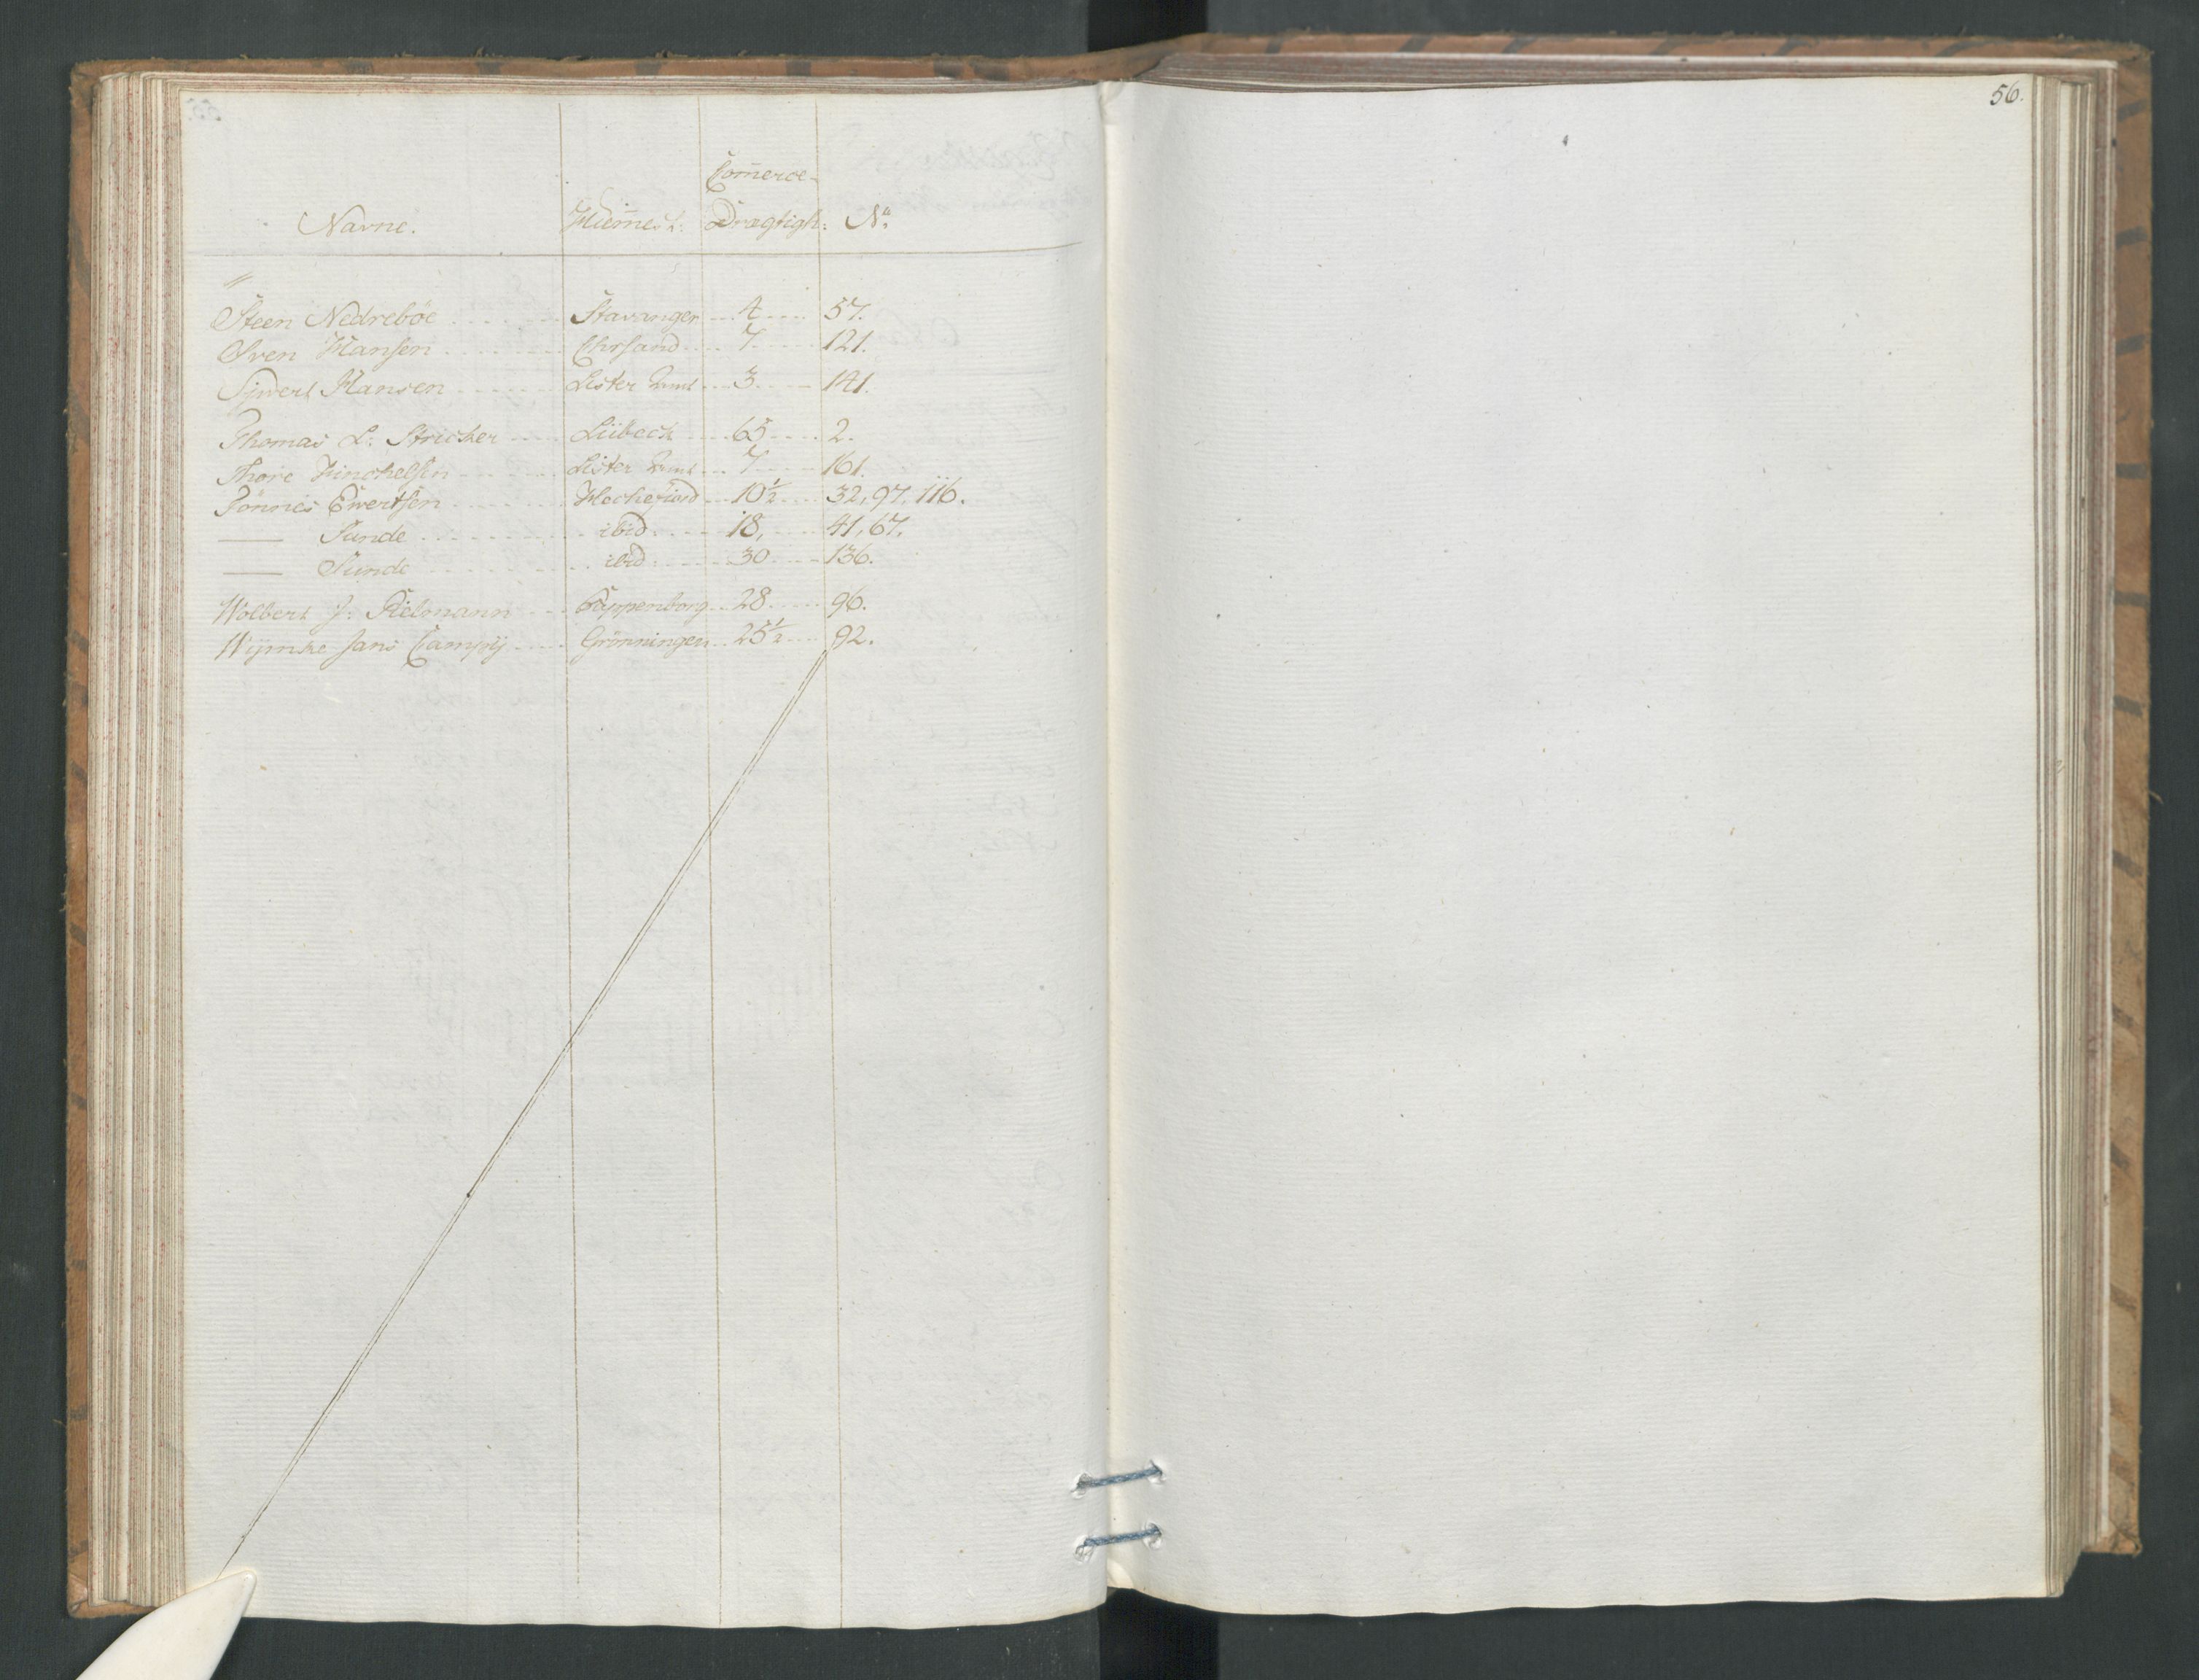 56.
Com̅erce-
Navne. Hiem̅est: Drægtigh: No.
Steen Nedrebøe Stavanger 4 57.
Sven Hansen Chrsand 7 121.
Sjvert Hansen Lister Amt 3 141.
Thomas L: Stricker Lübeck 65 2.
Thore Hinchelsen Lister Amt 7 161.
Tönnes Ewertsen Heckefiord 10½ 32, 97, 116.
— Sande ibid 18, 41, 67.
— Sunde ibid: 30 136.
Wolbert J: Kielmann Pappenborg 28 96.
Wijmke Jans Campij Grönningen 25½ 92.